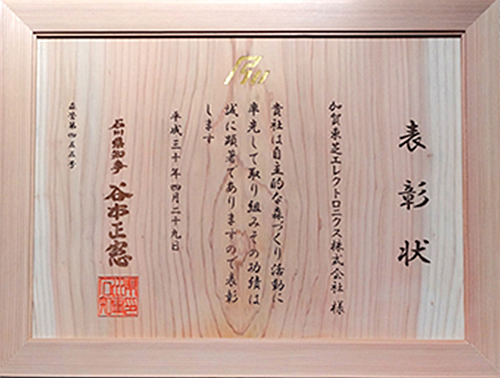 表彰状
加賀東芝エレクトロニクス株式会社 様
貴社は自主的な森づくり活動に
率先して取り組みその功績は
誠に顕著でありますので表彰
します
平成三十年四月二十九日
石川県知事 谷本正憲
森管第四五五号